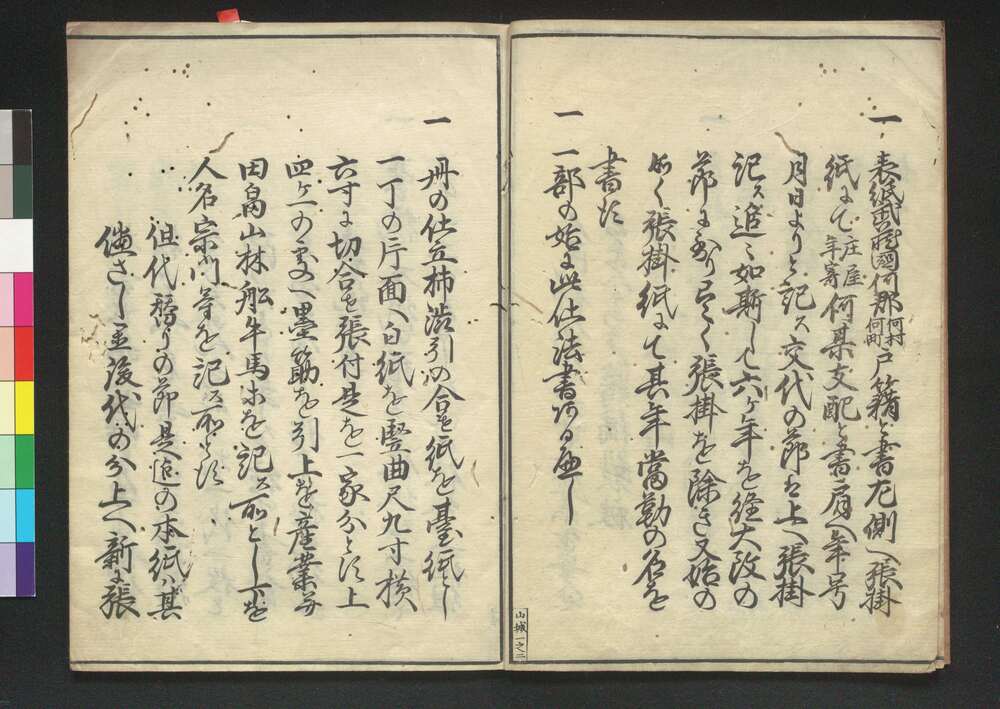 一 表紙ニ山城國何郡何村何町戸籍と書左側へ張掛
紙にて庄屋年寄何某支配と書肩へ年号
月日よりと記し交代の節も上へ張掛
記し追々如斯して六ヶ年を経大改の
節に至り悉く張掛を除き又始の
如く張掛紙にて其年當勤の名を
書す
一 一部の始に此仕法書可有之
一 丹の仕立柿渋引の合セ紙を臺紙とし
一丁の片面へ白紙を竪曲尺九寸横
六寸に切合せ張付是を一家分とす上
四ヶ一の處へ墨筋を引上を産業并
田畠山林船牛馬等を記す所とし下を
人名宗門等を記す所とす
但代替りの節是迠の本紙ハ其
儘さし置後代の分上へ新に張
山城一之二